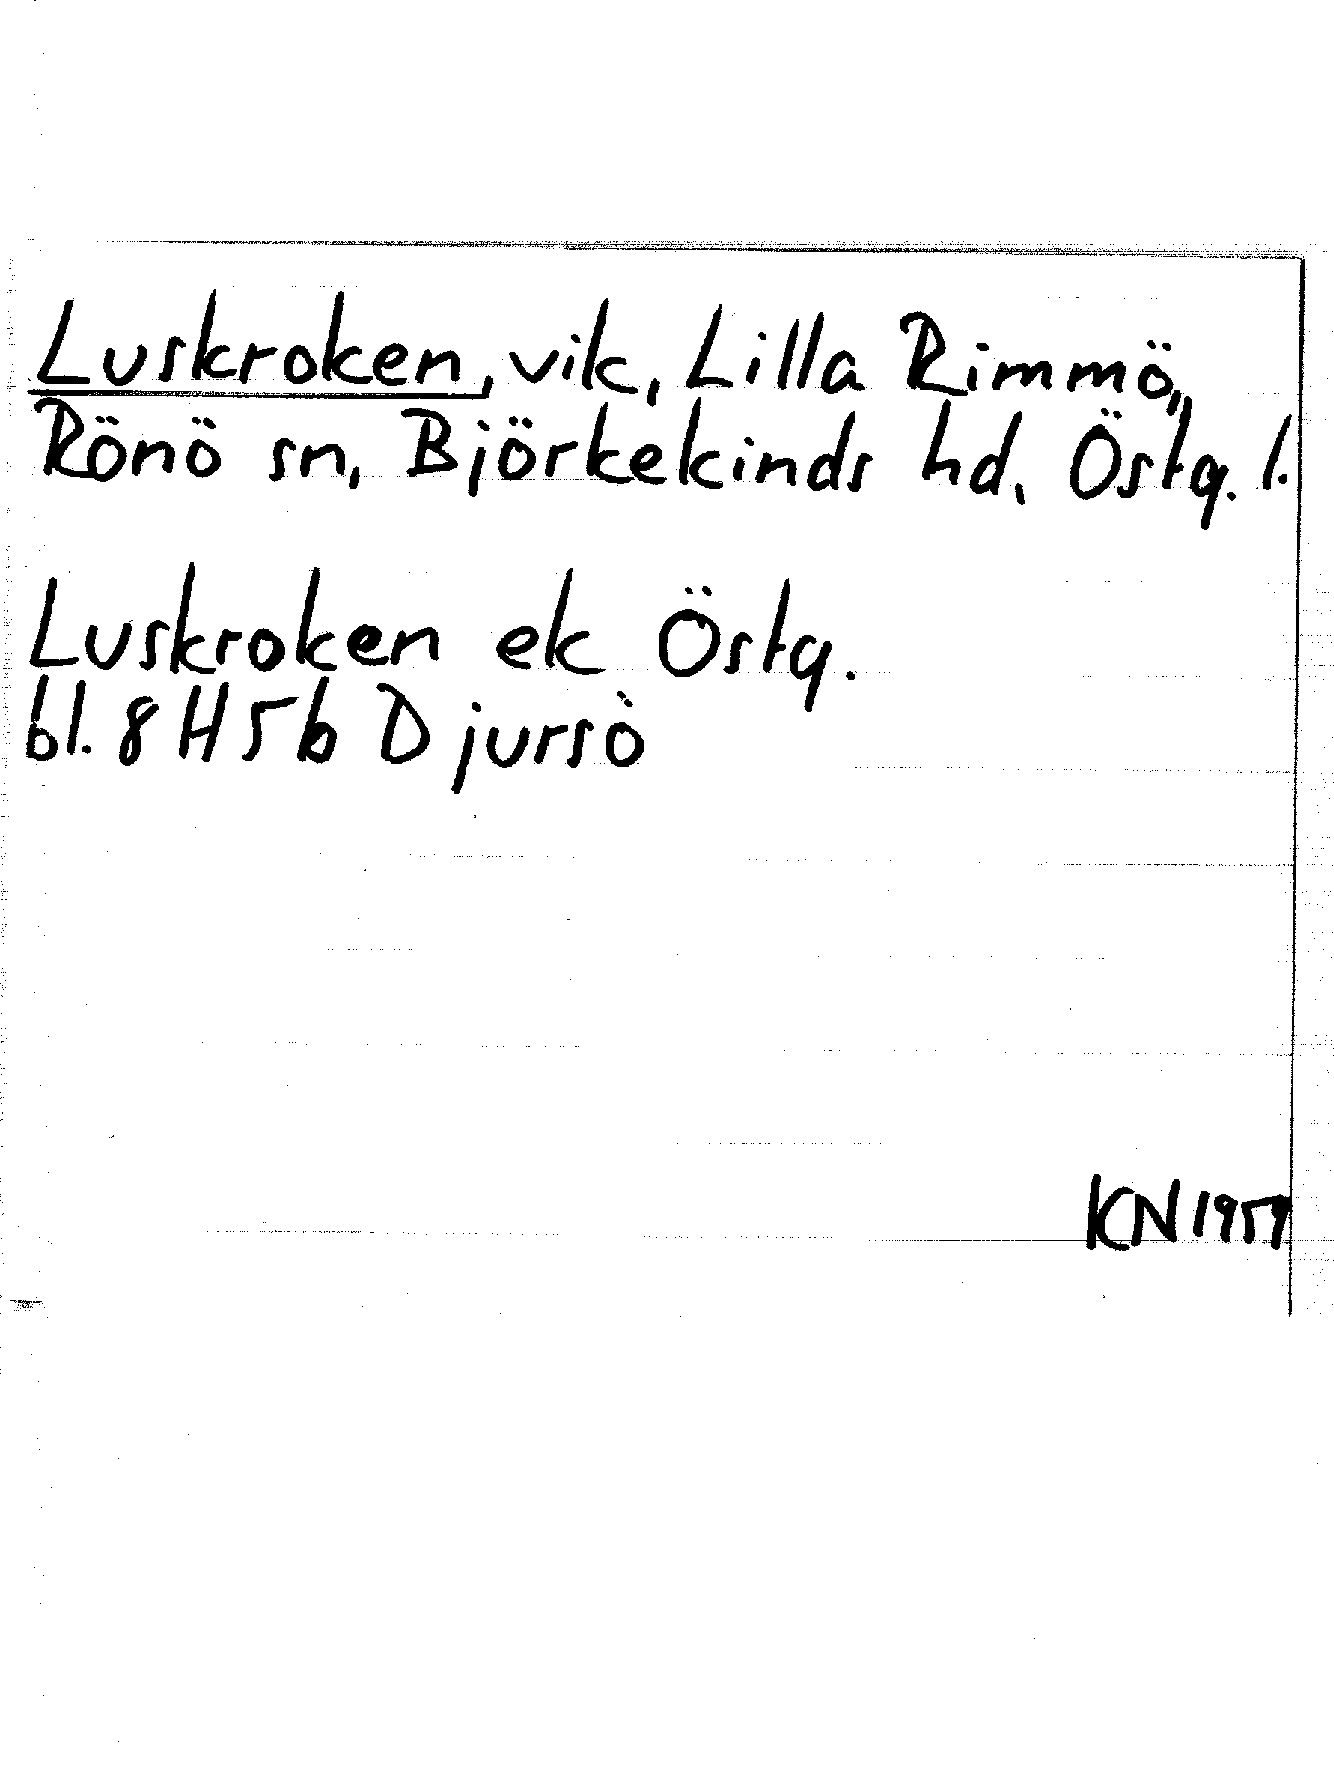 Luskroken, vik, Lilla Rimmö,
Rönö sn, Björkekinds hd, Östg. l.
Luskroken ek Östg.
bl. 8 H 5 b Djursö
KN 1959